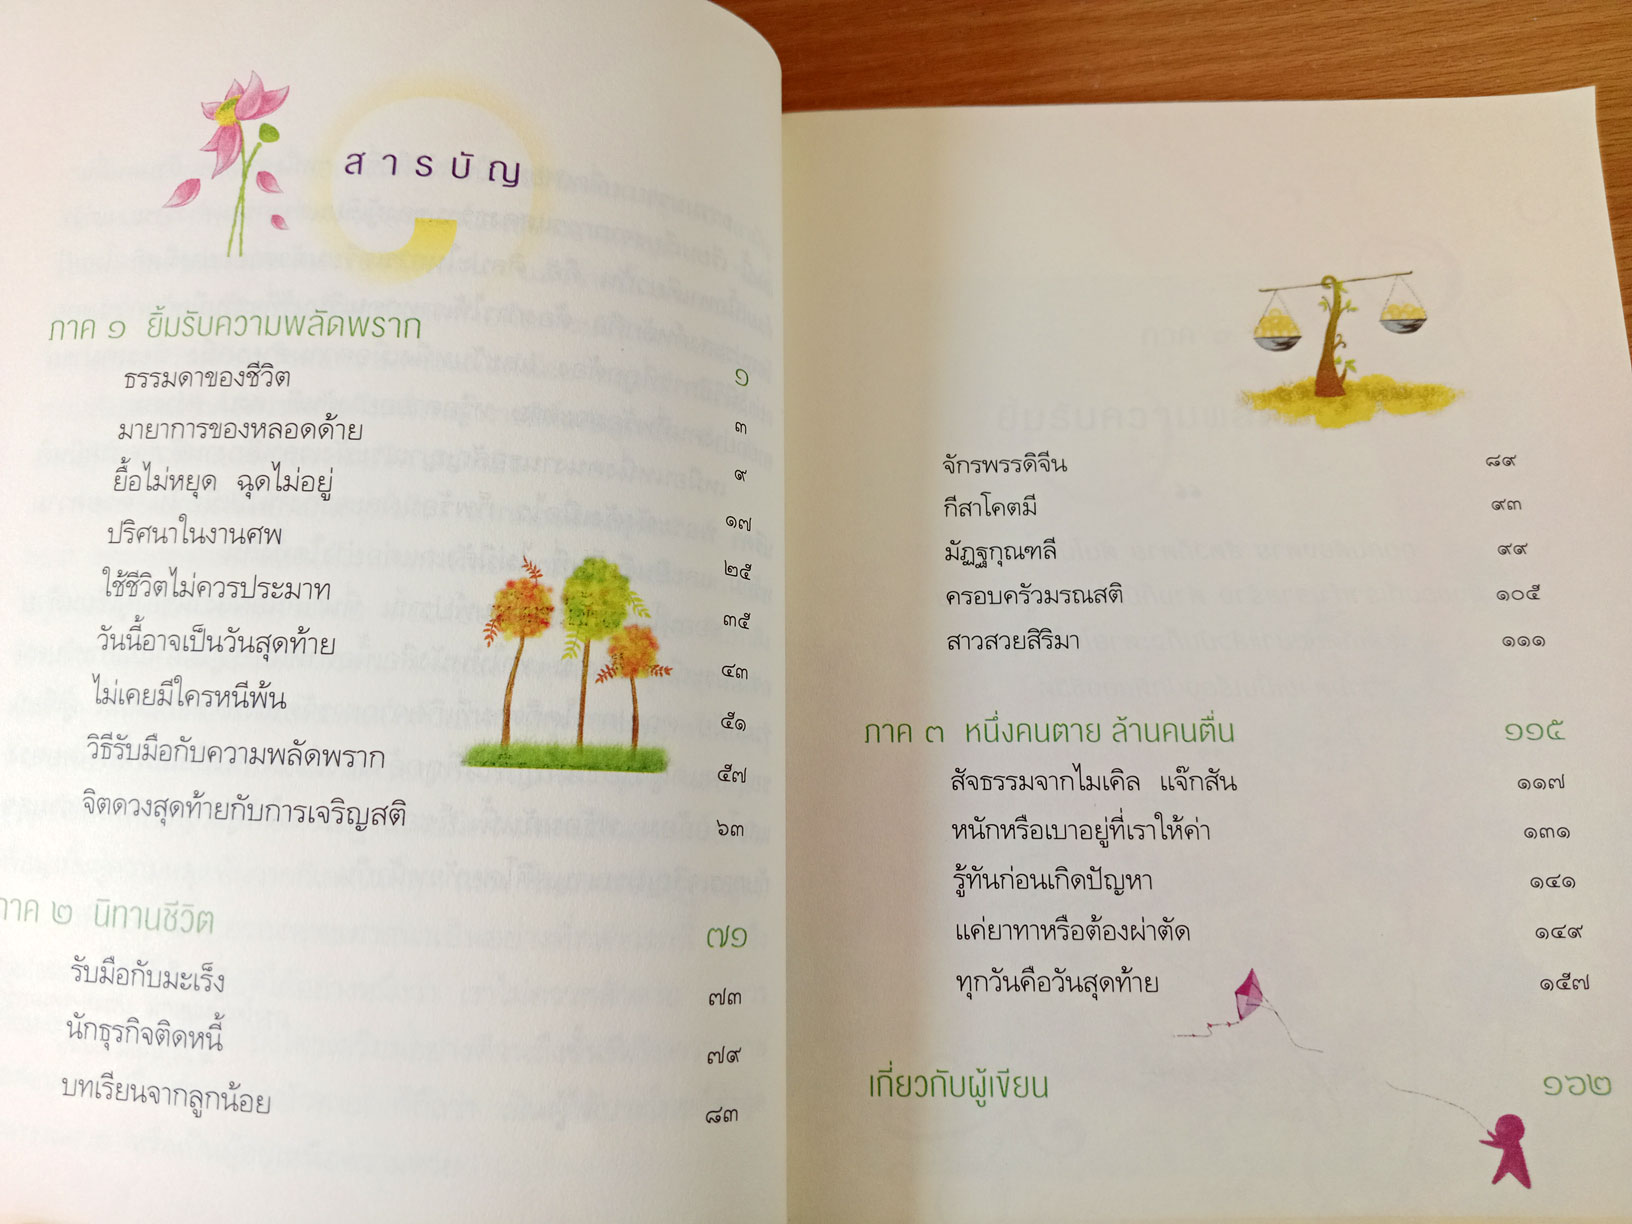 สารบัญ
ภาค ๑ ยิ้มรับความพลัดพราก ๑
ธรรมดาของชีวิต ๓
มายาการของหลอดด้าย ๙
ยื้อไม่หยุด ฉุดไม่อยู่ ๑๗
ปริศนาในงานศพ ๒๕
ใช้ชีวิตไม่ควรประมาท ๓๕
วันนี้อาจเป็นวันสุดท้าย ๔๓
ไม่เคยมีใครหนีพ้น ๕๑
วิธีรับมือกับความพลัดพราก ๕๗
จิตดวงสุดท้ายกับการเจริญสติ ๖๓
ภาค ๒ นิทานชีวิต ๗๑
รับมือกับมะเร็ง ๗๓
นักธุรกิจติดหนี้ ๗๙
บทเรียนจากลูกน้อย ๘๓
จักรพรรดิจีน ๘๙
กีสาโคตมี ๙๓
มัฏฐกุณฑลี ๙๙
ครอบครัวมรณสติ ๑๐๕
สาวสวยสิริมา ๑๑๑
ภาค ๓ หนึ่งคนตาย ล้านคนตื่น ๑๑๕
สัจธรรมจากไมเคิล แจ๊กสัน ๑๑๗
หนักหรือเบาอยู่ที่เราให้ค่า ๑๓๑
รู้ทันก่อนเกิดปัญหา ๑๔๑
แค่ยาทาหรือต้องผ่าตัด ๑๔๙
ทุกวันคือวันสุดท้าย ๑๕๗
เกี่ยวกับผู้เขียน ๑๖๒